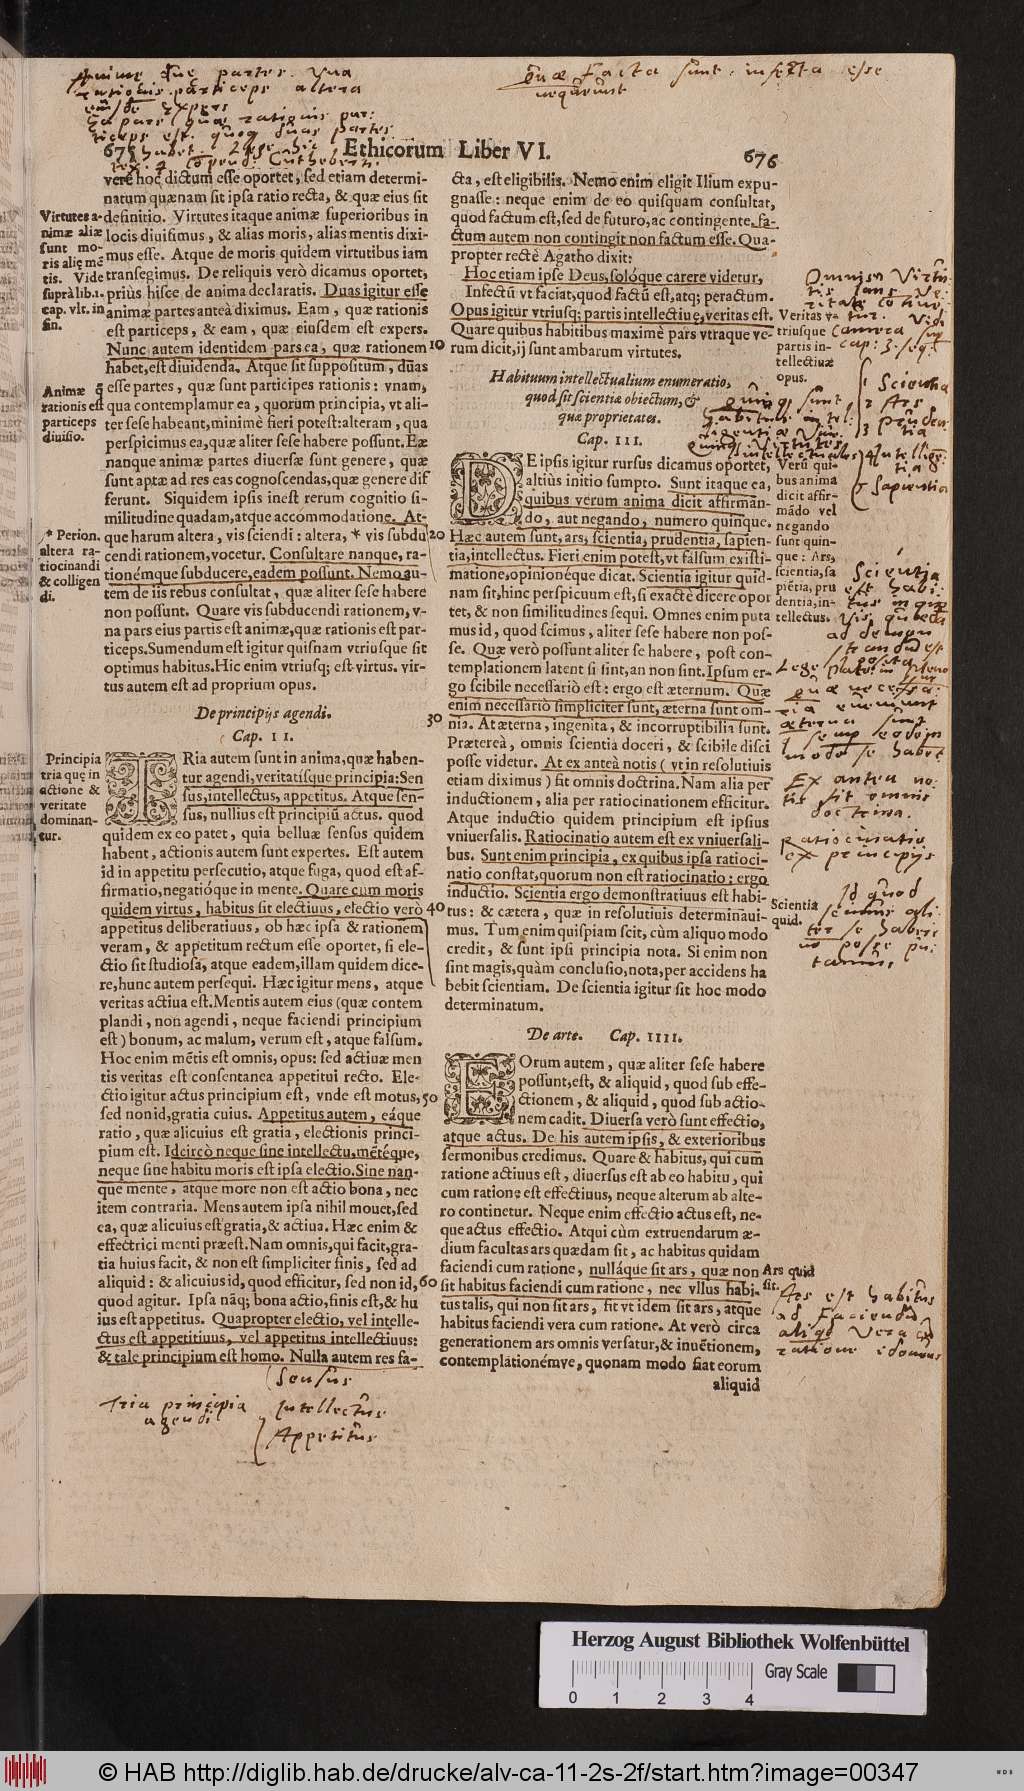 Animæ duę partes. Una
rationis particeps altera
eiusdē expers
Ea pars quæ rationis par:
ticeps est. quoq duas partes
habet. Lege hic
Quæ facta sunt, infecta esse
nequeunt
675 Ethicorum Liber VI. 676
verè hoc dictum esse oportet, sed etiam determi-
natum quænam sit ipsa ratio recta, & quæ eius sit
definitio. Virtutes itaque animæ superioribus in
locis diuisimus, & alias moris, alias mentis dixi-
mus esse. Atque de moris quidem virtutibus iam
transegimus. De reliquis verò dicamus oportet,
priùs hisce de anima declaratis. Duas igitur esse
animæ partes anteà diximus. Eam, quæ rationis
est particeps, & eam, quæ eiusdem est expers.
Nunc autem identidem pars ea, quæ rationem
habet, est diuidenda. Atque sit suppositum, duas
esse partes, quæ sunt participes rationis: vnam,
qua contemplamur ea, quorum principia, vt ali-
ter sese habeant, minimè fieri potest: alteram, qua
perspicimus ea, quæ aliter sese habere possunt. Eæ
nanque animæ partes diuersæ sunt genere, quæ
sunt aptæ ad res eas cognoscendas, quæ genere dif
ferunt. Siquidem ipsis inest rerum cognitio si-
militudine quadam, atque accommodatione. At-
que harum altera, vis sciendi: altera, * vis subdu
cendi rationem, vocetur. Consultare nanque, ra-
tionémque subducere, eadem possunt. Nemo au-
tem de iis rebus consultat, quæ aliter sese habere
non possunt. Quare vis subducendi rationem, v-
na pars eius partis est animæ, quæ rationis est par-
ticeps. Sumendum est igitur quisnam vtriusque sit
optimus habitus. Hic enim vtriusq; est virtus. vir-
tus autem est ad proprium opus.
Virtutes a-
nimæ aliæ
sunt mo-
ris alię mē
tis. Vide
suprà lib. 1.
cap. vlt. in
fin.
Animæ q̄
rationis est
particeps
diuisio.
* Perion.
altera ra-
tiocinandi
& colligen
di.
De principiis agendi.
Cap. II.
TRia autem sunt in anima, quæ haben-
tur agendi, veritatísque principia: Sen
sus, intellectus, appetitus. Atque sen-
sus, nullius est principiū actus. quod
quidem ex eo patet, quia belluæ sensus quidem
habent, actionis autem sunt expertes. Est autem
id in appetitu persecutio, atque fuga, quod est af-
firmatio, negatióque in mente. Quare cum moris
quidem virtus, habitus sit electiuus, electio verò
appetitus deliberatiuus, ob hæc ipsa & rationem
veram, & appetitum rectum esse oportet, si ele-
ctio sit studiosa, atque eadem, illam quidem dice-
re, hunc autem persequi. Hæc igitur mens, atque
veritas actiua est. Mentis autem eius (quæ contem
plandi, non agendi, neque faciendi principium
est) bonum, ac malum, verum est, atque falsum.
Hoc enim mētis est omnis, opus: sed actiuæ men
tis veritas est consentanea appetitui recto. Ele-
ctio igitur actus principium est, vnde est motus,
sed non id, gratia cuius. Appetitus autem, eáque
ratio, quæ alicuius est gratia, electionis princi-
pium est. Idcircò neque sine intellectu, mētéque,
neque sine habitu moris est ipsa electio. Sine nan-
que mente, atque more non est actio bona, nec
item contraria. Mens autem ipsa nihil mouet, sed
ea, quæ alicuius est gratia, & actiua. Hæc enim &
effectrici menti præest. Nam omnis, qui facit, gra-
tia huius facit, & non est simpliciter finis, sed ad
aliquid: & alicuius id, quod efficitur, sed non id,
quod agitur. Ipsa nāq; bona actio, finis est, & hu
ius est appetitus. Quapropter electio, vel intelle-
ctus est appetitiuus, vel appetitus intellectiuus:
& tale principium est homo. Nulla autem res fa-
Principia
tria quę in
actione &
veritate
dominan-
tur.
Tria principia
agendi
Sensus
Intellectus
Appetitus
10
20
30
40
50
60
cta, est eligibilis. Nemo enim eligit Ilium expu-
gnasse: neque enim de eo quisquam consultat,
quod factum est, sed de futuro, ac contingente. fa-
ctum autem non contingit non factum esse. Qua-
propter rectè Agatho dixit:
Hoc etiam ipse Deus, solóque carere videtur,
Infectū vt faciat, quod factū est, atq; peractum.
Opus igitur vtriusq; partis intellectiuę, veritas est.
Quare quibus habitibus maximè pars vtraque ve-
rum dicit, ij sunt ambarum virtutes.
Habituum intellectualium enumeratio,
quod sit scientiæ obiectum, &
quæ proprietates.
Cap. III.
DE ipsis igitur rursus dicamus oportet,
altiùs initio sumpto. Sunt itaque ea,
quibus verum anima dicit affirman-
do, aut negando, numero quinque.
Hæc autem sunt, ars, scientia, prudentia, sapien-
tia, intellectus. Fieri enim potest, vt falsum existi-
matione, opinionéque dicat. Scientia igitur quid-
nam sit, hinc perspicuum est, si exactè dicere opor
tet, & non similitudines sequi. Omnes enim puta
mus id, quod scimus, aliter sese habere non pos-
se. Quæ verò possunt aliter se habere, post con-
templationem latent si sint, an non sint. Ipsum er-
go scibile necessariò est: ergo est æternum. Quæ
enim necessariò simpliciter sunt, æterna sunt om-
nia. At æterna, ingenita, & incorruptibilia sunt.
Prætereà, omnis scientia doceri, & scibile disci
posse videtur. At ex anteà notis (vt in resolutiuis
etiam diximus) fit omnis doctrina. Nam alia per
inductionem, alia per ratiocinationem efficitur.
Atque inductio quidem principium est ipsius
vniuersalis. Ratiocinatio autem est ex vniuersali-
bus. Sunt enim principia, ex quibus ipsa ratioci-
natio constat, quorum non est ratiocinatio: ergo
inductio. Scientia ergo demonstratiuus est habi-
tus: & cætera, quæ in resolutiuis determinaui-
mus. Tum enim quispiam scit, cùm aliquo modo
credit, & sunt ipsi principia nota. Si enim non
sint magis, quàm conclusio, nota, per accidens ha
bebit scientiam. De scientia igitur sit hoc modo
determinatum.
De arte. Cap. IIII.
EOrum autem, quæ aliter sese habere
possunt, est, & aliquid, quod sub effe-
ctionem, & aliquid, quod sub actio-
nem cadit. Diuersa verò sunt effectio,
atque actus. De his autem ipsis, & exterioribus
sermonibus credimus. Quare & habitus, qui cum
ratione actiuus est, diuersus est ab eo habitu, qui
cum ratione est effectiuus, neque alterum ab alte-
ro continetur. Neque enim effectio actus est, ne-
que actus effectio. Atqui cùm extruendarum æ-
dium facultas ars quædam sit, ac habitus quidam
faciendi cum ratione, nulláque sit ars, quæ non
sit habitus faciendi cum ratione, nec vllus habi-
tus talis, qui non sit ars, fit vt idem sit ars, atque
habitus faciendi vera cum ratione. At verò circa
generationem ars omnis versatur, & inuētionem,
contemplationémve, quonam modo fiat eorum
aliquid
Veritas v-
triusque
partis in-
tellectiuæ
opus.
Verū qui-
bus anima
dicit affir-
mādo vel
negando
sunt quin-
que: Ars,
scientia, sa
piētia, pru
dentia, in-
tellectus.
Scientia
quid.
Ars quid
sit.
Quinq sunt
habitus intel:
Quinq Virtutes
intellectuales
1 Scientia
2 Ars
3 Pruden:
tia
4 Intellige:
tia
5 Sapientia
Scientia
est habi:
Ex antea no:
tis fit omnis
doctrina.
Ratiocinatio
ex principijs
Id quod
scimus ali:
ter se habere
nō posse pu:
tamus.
Ars est habitus
ad Faciendū
aliqd Vera cū
ratione idoneus
Herzog August Bibliothek Wolfenbüttel
Gray Scale
0 1 2 3 4
© HAB http://diglib.hab.de/drucke/alv-ca-11-2s-2f/start.htm?image=00347